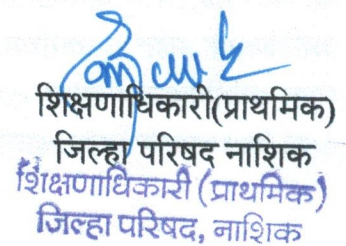 शिक्षणाधिकारी(प्राथमिक)
जिल्हा परिषद नाशिक
शिक्षणाधिकारी (प्राथमिक)
जिल्हा परिषद, नाशिक